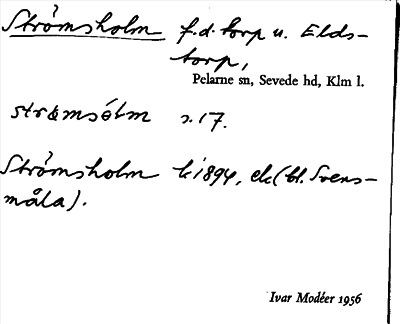 Strömsholm f.d. torp u. Elds-
torp,
Pelarne sn, Sevede hd, Klm l.
strømsólm s. 17.
Strömsholm k 1894, ek (bl. Svens-
måla).
Ivar Modéer 1956